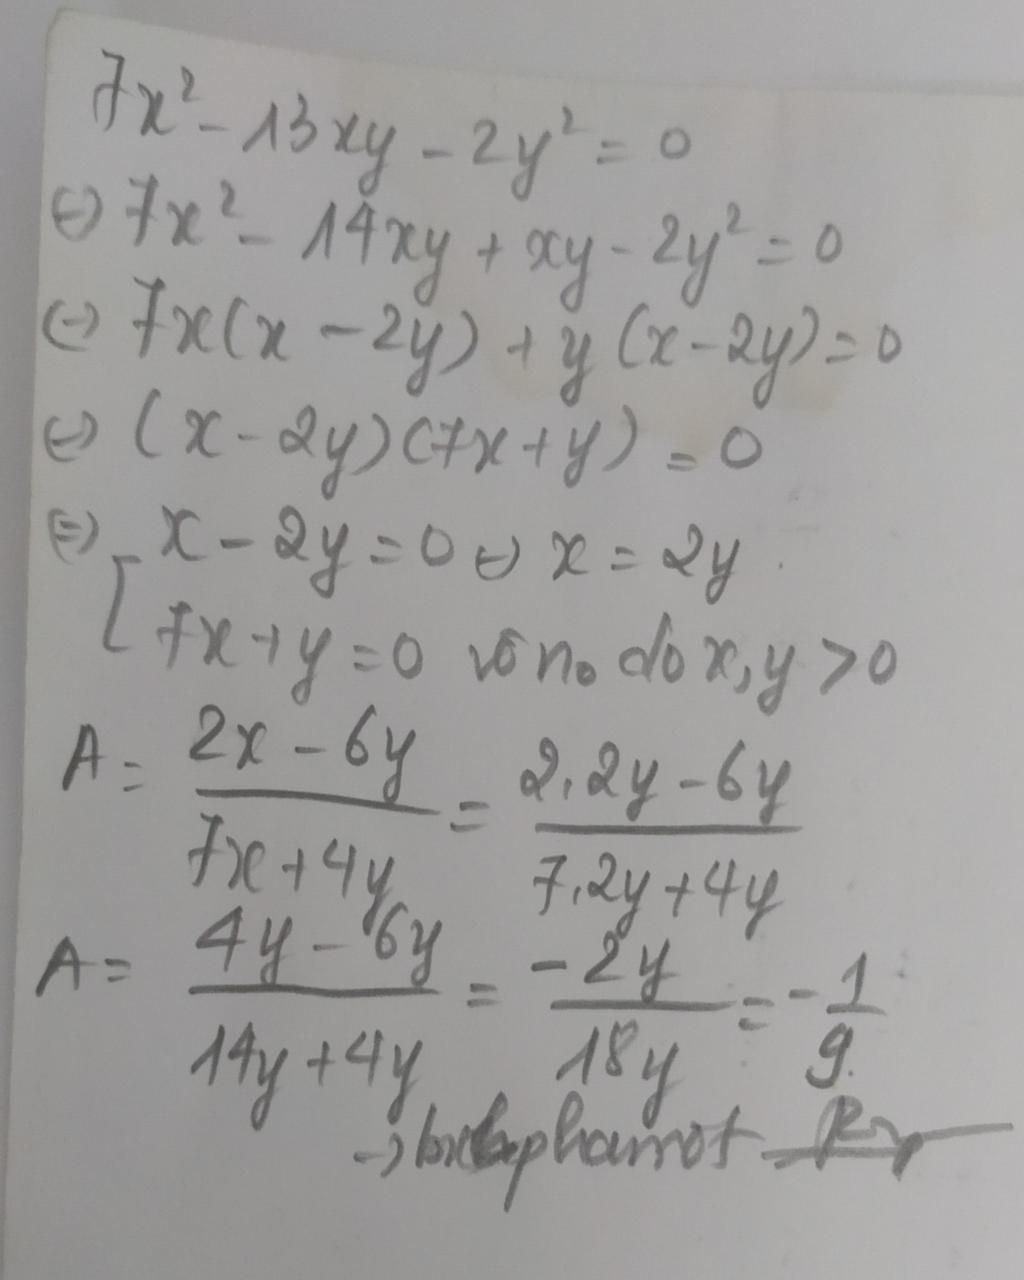 7x² - 13xy - 2y² = 0
⇔ 7x² - 14xy + xy - 2y² = 0
⇔ 7x(x - 2y) + y(x - 2y) = 0
⇔ (x - 2y)(7x + y) = 0
⇔ [ x - 2y = 0 ⇔ x = 2y
7x + y = 0 vô no do x, y > 0
A = (2x - 6y)/(7x + 4y) = (2.2y - 6y)/(7.2y + 4y)
A = (4y - 6y)/(14y + 4y) = (-2y)/(18y) = -1/9.